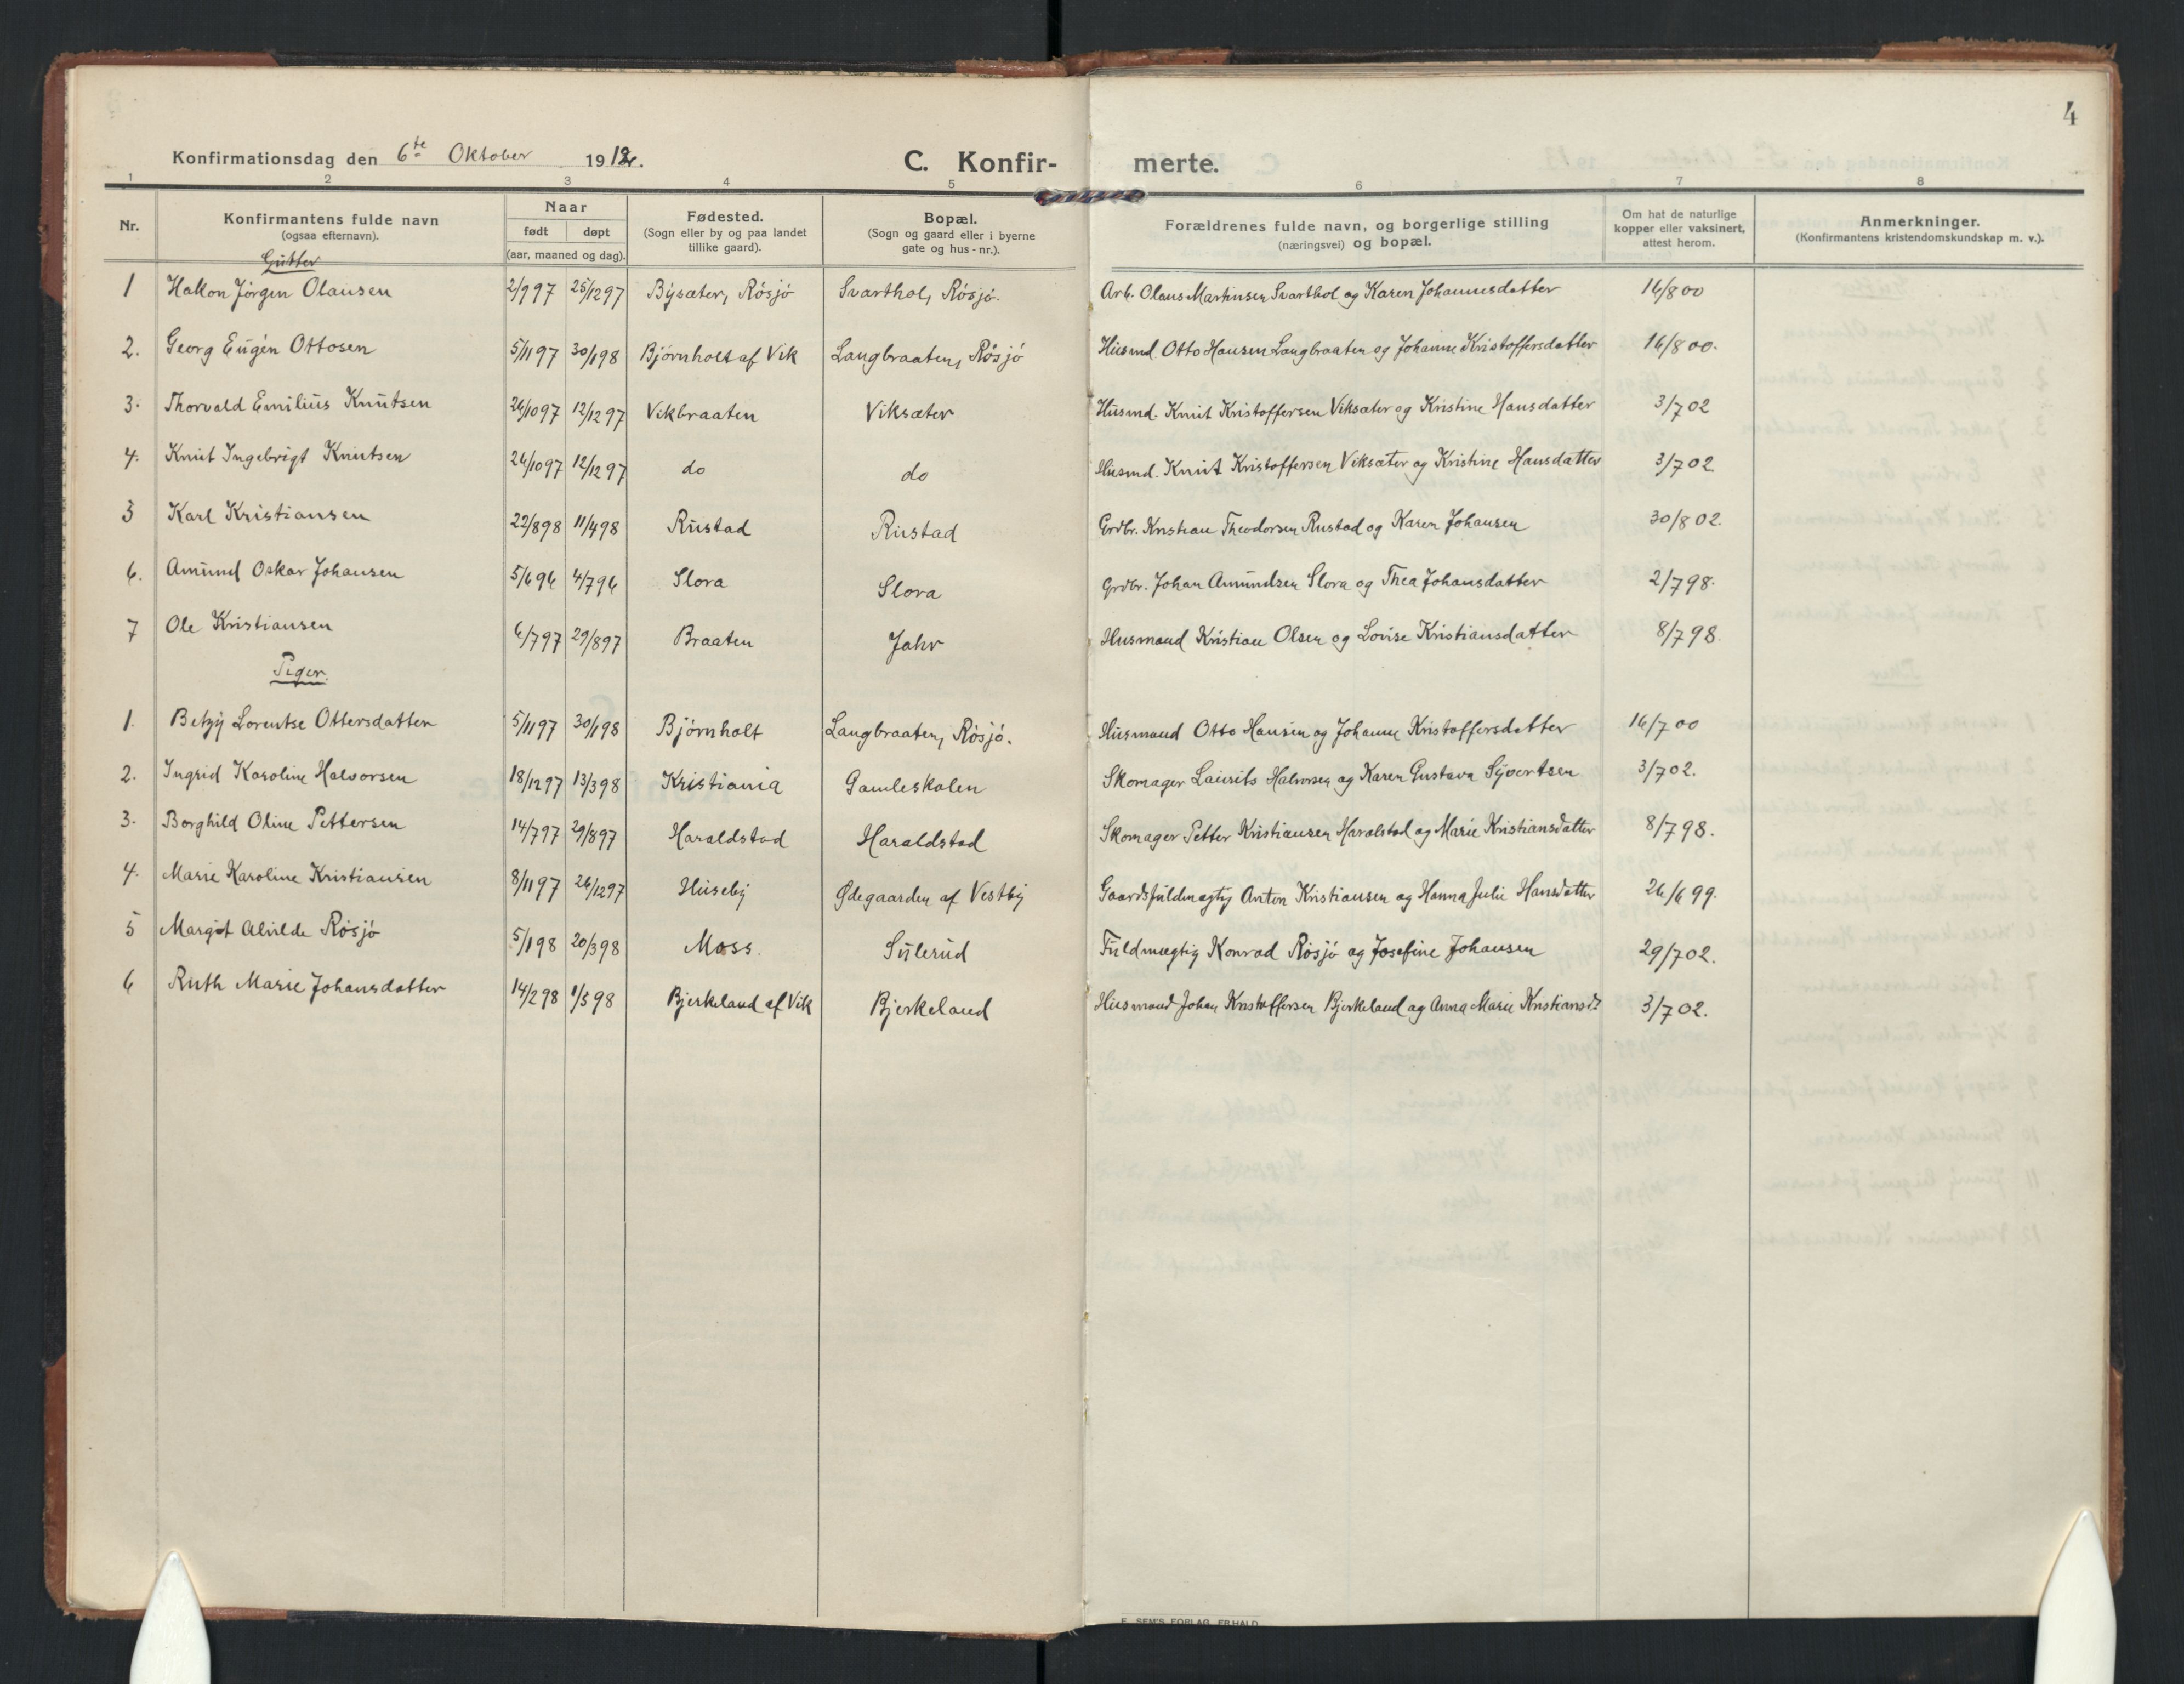 4
Konfirmationsdag den 6te Oktober 1912.
C. Konfirmerte.
1 2 3 4 5 6 7 8
Nr. | Konfirmantens fulde navn (ogsaa efternavn). | Naar født | døpt (aar, maaned og dag). | Fødested. (Sogn eller by og paa landet tillike gaard). | Bopæl. (Sogn og gaard eller i byerne gate og hus-nr.). | Forældrenes fulde navn, og borgerlige stilling (næringsvei) og bopæl. | Om hat de naturlige kopper eller vaksinert, attest herom. | Anmerkninger. (Konfirmantens kristendomskundskap m. v.).
Gutter
1 Hakon Jörgen Olausen 2/9 97 25/12 97 Bysæter, Rösjö Svarthol, Rösjö. Arb. Olaus Martinsen Svarthol og Karen Johannesdatter 16/8 00
2. Georg Eugén Ottosen 5/11 97 30/1 98 Björnholt af Vik Langbraaten, Rösjö Husmd. Otto Hansen Langbraaten og Johanne Kristoffersdatter 16/8 00.
3. Thorvald Emilius Knutsen 26/10 97 12/12 97 Vikbraaten Viksæter Husmd. Knut Kristoffersen Viksæter og Kristine Hansdatter 3/7 02
4. Knut Ingebrigt Knutsen 26/10 97 12/12 97 do do Husmd. Knut Kristoffersen Viksæter og Kristine Hansdatter 3/7 02
5 Karl Kristiansen 22/8 98 11/4 98 Rustad Rustad Grdbr. Kristian Theodorsen Rustad og Karen Johansen 30/8 02.
6. Amund Oskar Johansen 5/6 96 4/7 96 Slora Slora Grdbr. Johan Amundsen Slora og Thea Johansdatter 2/7 98.
7 Ole Kristiansen 6/7 97 29/8 97 Braaten Jahr Husmand Kristian Olsen og Lovise Kristiansdatter 8/7 98.
Piger.
1. Betzy Lorentse Ottersdatter 5/11 97 30/1 98 Björnholt Langbraaten, Rösjö. Husmand Otto Hansen og Johanne Kristoffersdatter 16/7 00
2. Ingrid Karoline Halvorsen 18/12 97 13/3 98 Kristiania Gamleskolen Skomager Laurits Halvorsen og Karen Gustava Syvertsen 3/7 02.
3. Borghild Oline Pettersen 14/7 97 29/8 97 Haraldstad Haraldstad Skomager Petter Kristiansen Haralstad og Marie Kristiansdatter 8/7 98.
4. Marie Karoline Kristiansen 8/11 97 26/12 97 Huseby Ødegaarden af Vestby Gaardsfuldmægtig Anton Kristiansen og Hanna Julie Hansdatter 26/6 99.
5 Margit Alvilde Rösjö 5/1 98 20/3 98 Moss. Sulerud Fuldmægtig Konrad Rösjö og Josefine Johansen 29/7 02.
6 Ruth Marie Johansdatter 14/2 98 1/5 98 Bjerkeland af Vik Bjerkeland Husmand Johan Kristoffersen Bjerkeland og Anna Marie Kristiansdt 3/7 02.
E. SEM'S FORLAG, FR.HALD